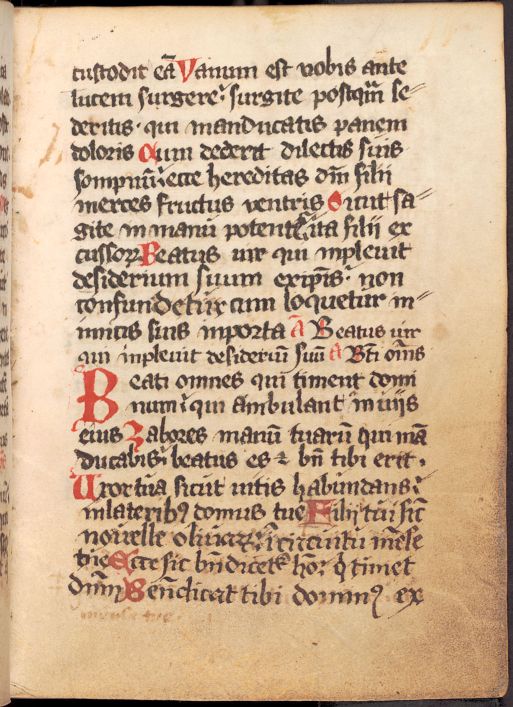 custodit eā Vanum est vobis ante
lucem surgere· surgite postqm̄ se-
deritis· qui manducatis panem
doloris Cum dederit dilectis suis
sompnum· ecce hereditas dm̄ filii
merces fructus ventris Sicut sa-
gite in manu potent ita filij ex
cussorꝝ Beatus uir qui inpleuit
desiderium suum ex ip̄is· non
confundetur cum loquetur in-
imicis suis inporta A Beatus uir
qui inpleuit desideriū suū A Bt̄i om̄s
Beati omnes qui timent domi
num· qui ambulant in uijs
eius Labores manū tuarū qui mā
ducabis· beatus es ⁊ bn̄ tibi erit·
Uxor tua sicut uitis habundans·
in laterib⁹ domus tue Filij tui sic̄
nouelle oliuarꝝ· in circuitu mēse
tue Ecce sic bn̄dicet᷑ ho᷑ q̄ timet
dnm̄ Benēdicat tibi domin⁹ ex